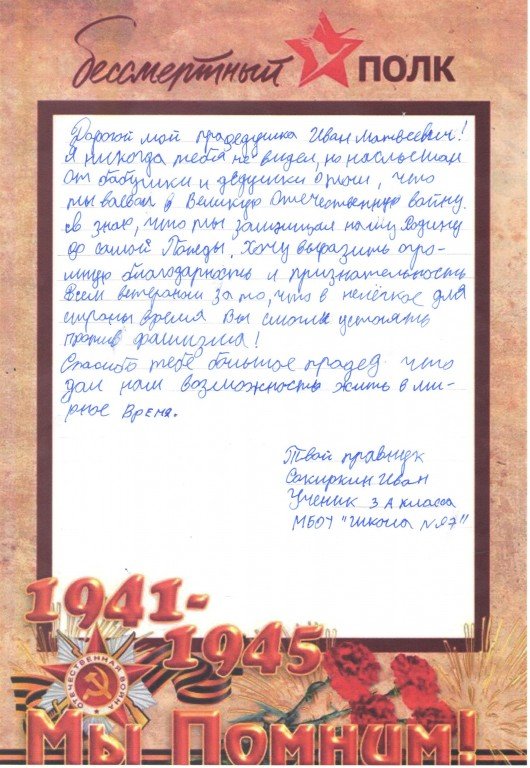 бессмертный ПОЛК
Дорогой мой прадедушка Иван Матвеевич!
Я никогда тебя не видел, но наслышан
от бабушки и дедушки о том, что
ты воевал в Великую Отечественную войну.
Я знаю, что ты защищал нашу Родину
до самой Победы. Хочу выразить огро-
мную благодарность и признательность
всем ветеранам за то, что в нелёгкое для
страны время Вы смогли устоять
против фашизма!
Спасибо тебе большое прадед что
дал нам возможность жить в ми-
рное время.
Твой правнук
Сакиркин Иван
Ученик 3 А класса
МБОУ "Школа №97"
1941-
1945
ОТЕЧЕСТВЕННАЯ ВОЙНА
Мы Помним!